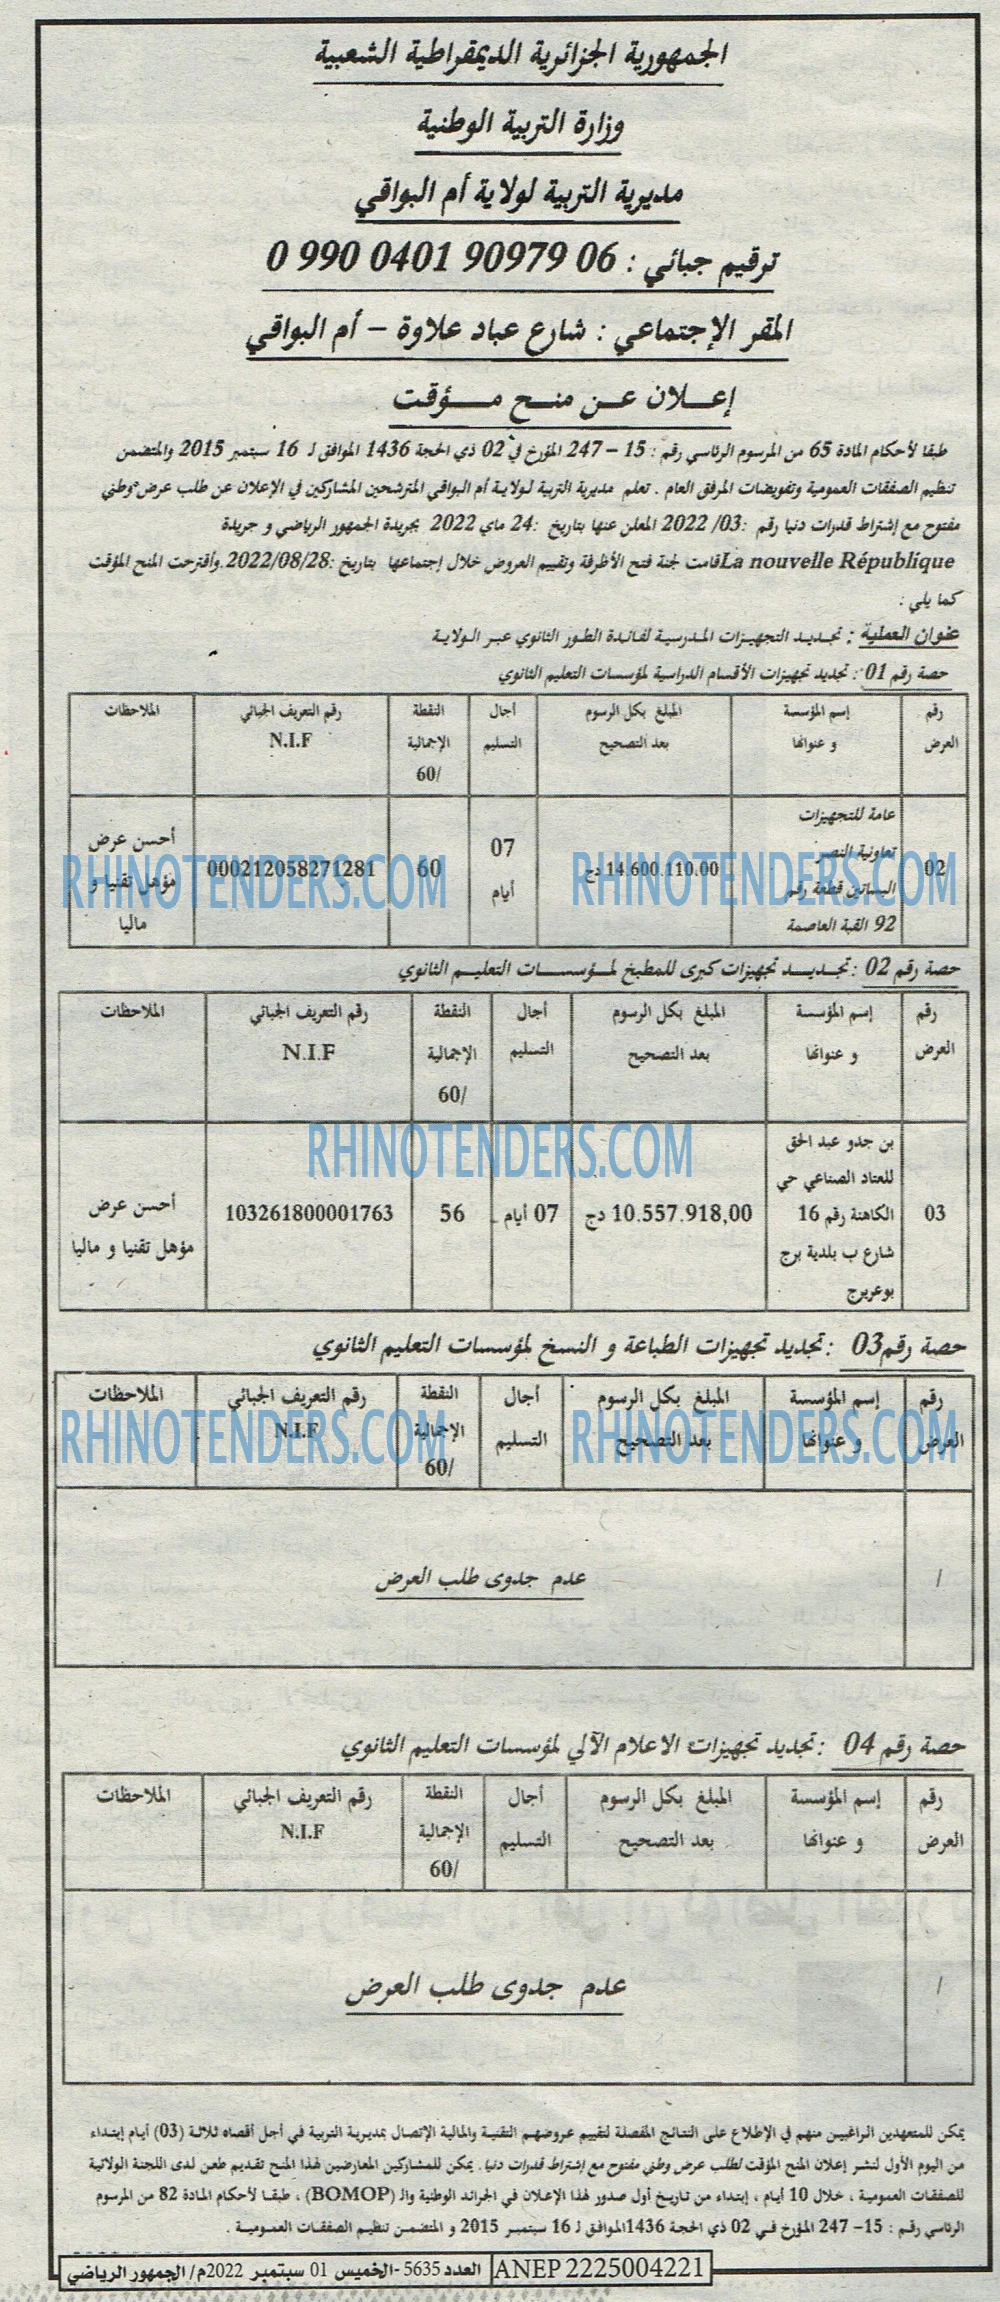 الجمهورية الجزائرية الديمقراطية الشعبية
وزارة التربية الوطنية
مديرية التربية لولاية أم البواقي
ترقيم جبائي : 06 90979 0401 990 0
المقر الإجتماعي : شارع عباد علاوة – أم البواقي
إعـلان عـن منـح مـؤقت
طبقا لأحكام المادة 65 من المرسوم الرئاسي رقم : 15 – 247 المؤرخ في 02 ذي الحجة 1436 الموافق لـ 16 سبتمبر 2015 والمتضمن
تنظيم الصفقات العمومية وتفويضات المرفق العام . تعلم مديرية التربية لولاية أم البواقي المترشحين المشاركين في الإعلان عن طلب عرض وطني
مفتوح مع إشتراط قدرات دنيا رقم :03/ 2022 المعلن عنها بتاريخ :24 ماي 2022 بجريدة الجمهور الرياضي و جريدة
La nouvelle République قامت لجنة فتح الأظرفة وتقييم العروض خلال إجتماعها بتاريخ :2022/08/28.وأقترحت المنح المؤقت
كما يلي :
عنوان العملية : تجديد التجهيزات المدرسية لفائدة الطور الثانوي عبر الولاية
حصة رقم 01 : تجديد تجهيزات الأقسام الدراسية لمؤسسات التعليم الثانوي
رقم العرض | إسم المؤسسة و عنوانها | المبلغ بكل الرسوم بعد التصحيح | أجال التسليم | النقطة الإجمالية /60 | رقم التعريف الجبائي N.I.F | الملاحظات
02 | عامة للتجهيزات تعاونية النصر البساتين قطعة رقم 92 القبة العاصمة | 14.600.110,00 دج | 07 أيام | 60 | 000212058271281 | أحسن عرض مؤهل تقنيا و ماليا
RHINOTENDERS.COM RHINOTENDERS.COM
حصة رقم 02 : تجديد تجهيزات كبرى للمطبخ لمؤسسات التعليم الثانوي
رقم العرض | إسم المؤسسة و عنوانها | المبلغ بكل الرسوم بعد التصحيح | أجال التسليم | النقطة الإجمالية /60 | رقم التعريف الجبائي N.I.F | الملاحظات
RHINOTENDERS.COM
03 | بن جدو عبد الحق للعتاد الصناعي حي الكاهنة رقم 16 شارع ب بلدية برج بوعريرج | 10.557.918,00 دج | 07 أيام | 56 | 103261800001763 | أحسن عرض مؤهل تقنيا و ماليا
حصة رقم03 : تجديد تجهيزات الطباعة و النسخ لمؤسسات التعليم الثانوي
رقم العرض | إسم المؤسسة و عنوانها | المبلغ بكل الرسوم بعد التصحيح | أجال التسليم | النقطة الإجمالية /60 | رقم التعريف الجبائي N.I.F | الملاحظات
RHINOTENDERS.COM RHINOTENDERS.COM
/ | عدم جدوى طلب العرض
حصة رقم 04 : تجديد تجهيزات الاعلام الآلي لمؤسسات التعليم الثانوي
رقم العرض | إسم المؤسسة و عنوانها | المبلغ بكل الرسوم بعد التصحيح | أجال التسليم | النقطة الإجمالية /60 | رقم التعريف الجبائي N.I.F | الملاحظات
/ | عدم جدوى طلب العرض
يمكن للمتعهدين الراغبين منهم في الإطلاع على النتائج المفصلة لتقييم عروضهم التقنية والمالية الإتصال بمديرية التربية في أجل أقصاه ثلاثة (03) أيام إبتداء
من اليوم الأول لنشر إعلان المنح المؤقت لطلب عرض وطني مفتوح مع إشتراط قدرات دنيا. يمكن للمشاركين المعارضين لهذا المنح تقديم طعن لدى اللجنة الولائية
للصفقات العمومية ، خلال 10 أيام ، إبتداء من تاريخ أول صدور لهذا الإعلان في الجرائد الوطنية والـ (BOMOP) ، طبقا لأحكام المادة 82 من المرسوم
الرئاسي رقم : 15– 247 المؤرخ في 02 ذي الحجة 1436الموافق لـ 16 سبتمبر 2015 و المتضمن تنظيم الصفقات العمومية .
ANEP 2225004221 العدد 5635 -الخميس 01 سبتمبر 2022م/ الجمهور الرياضي